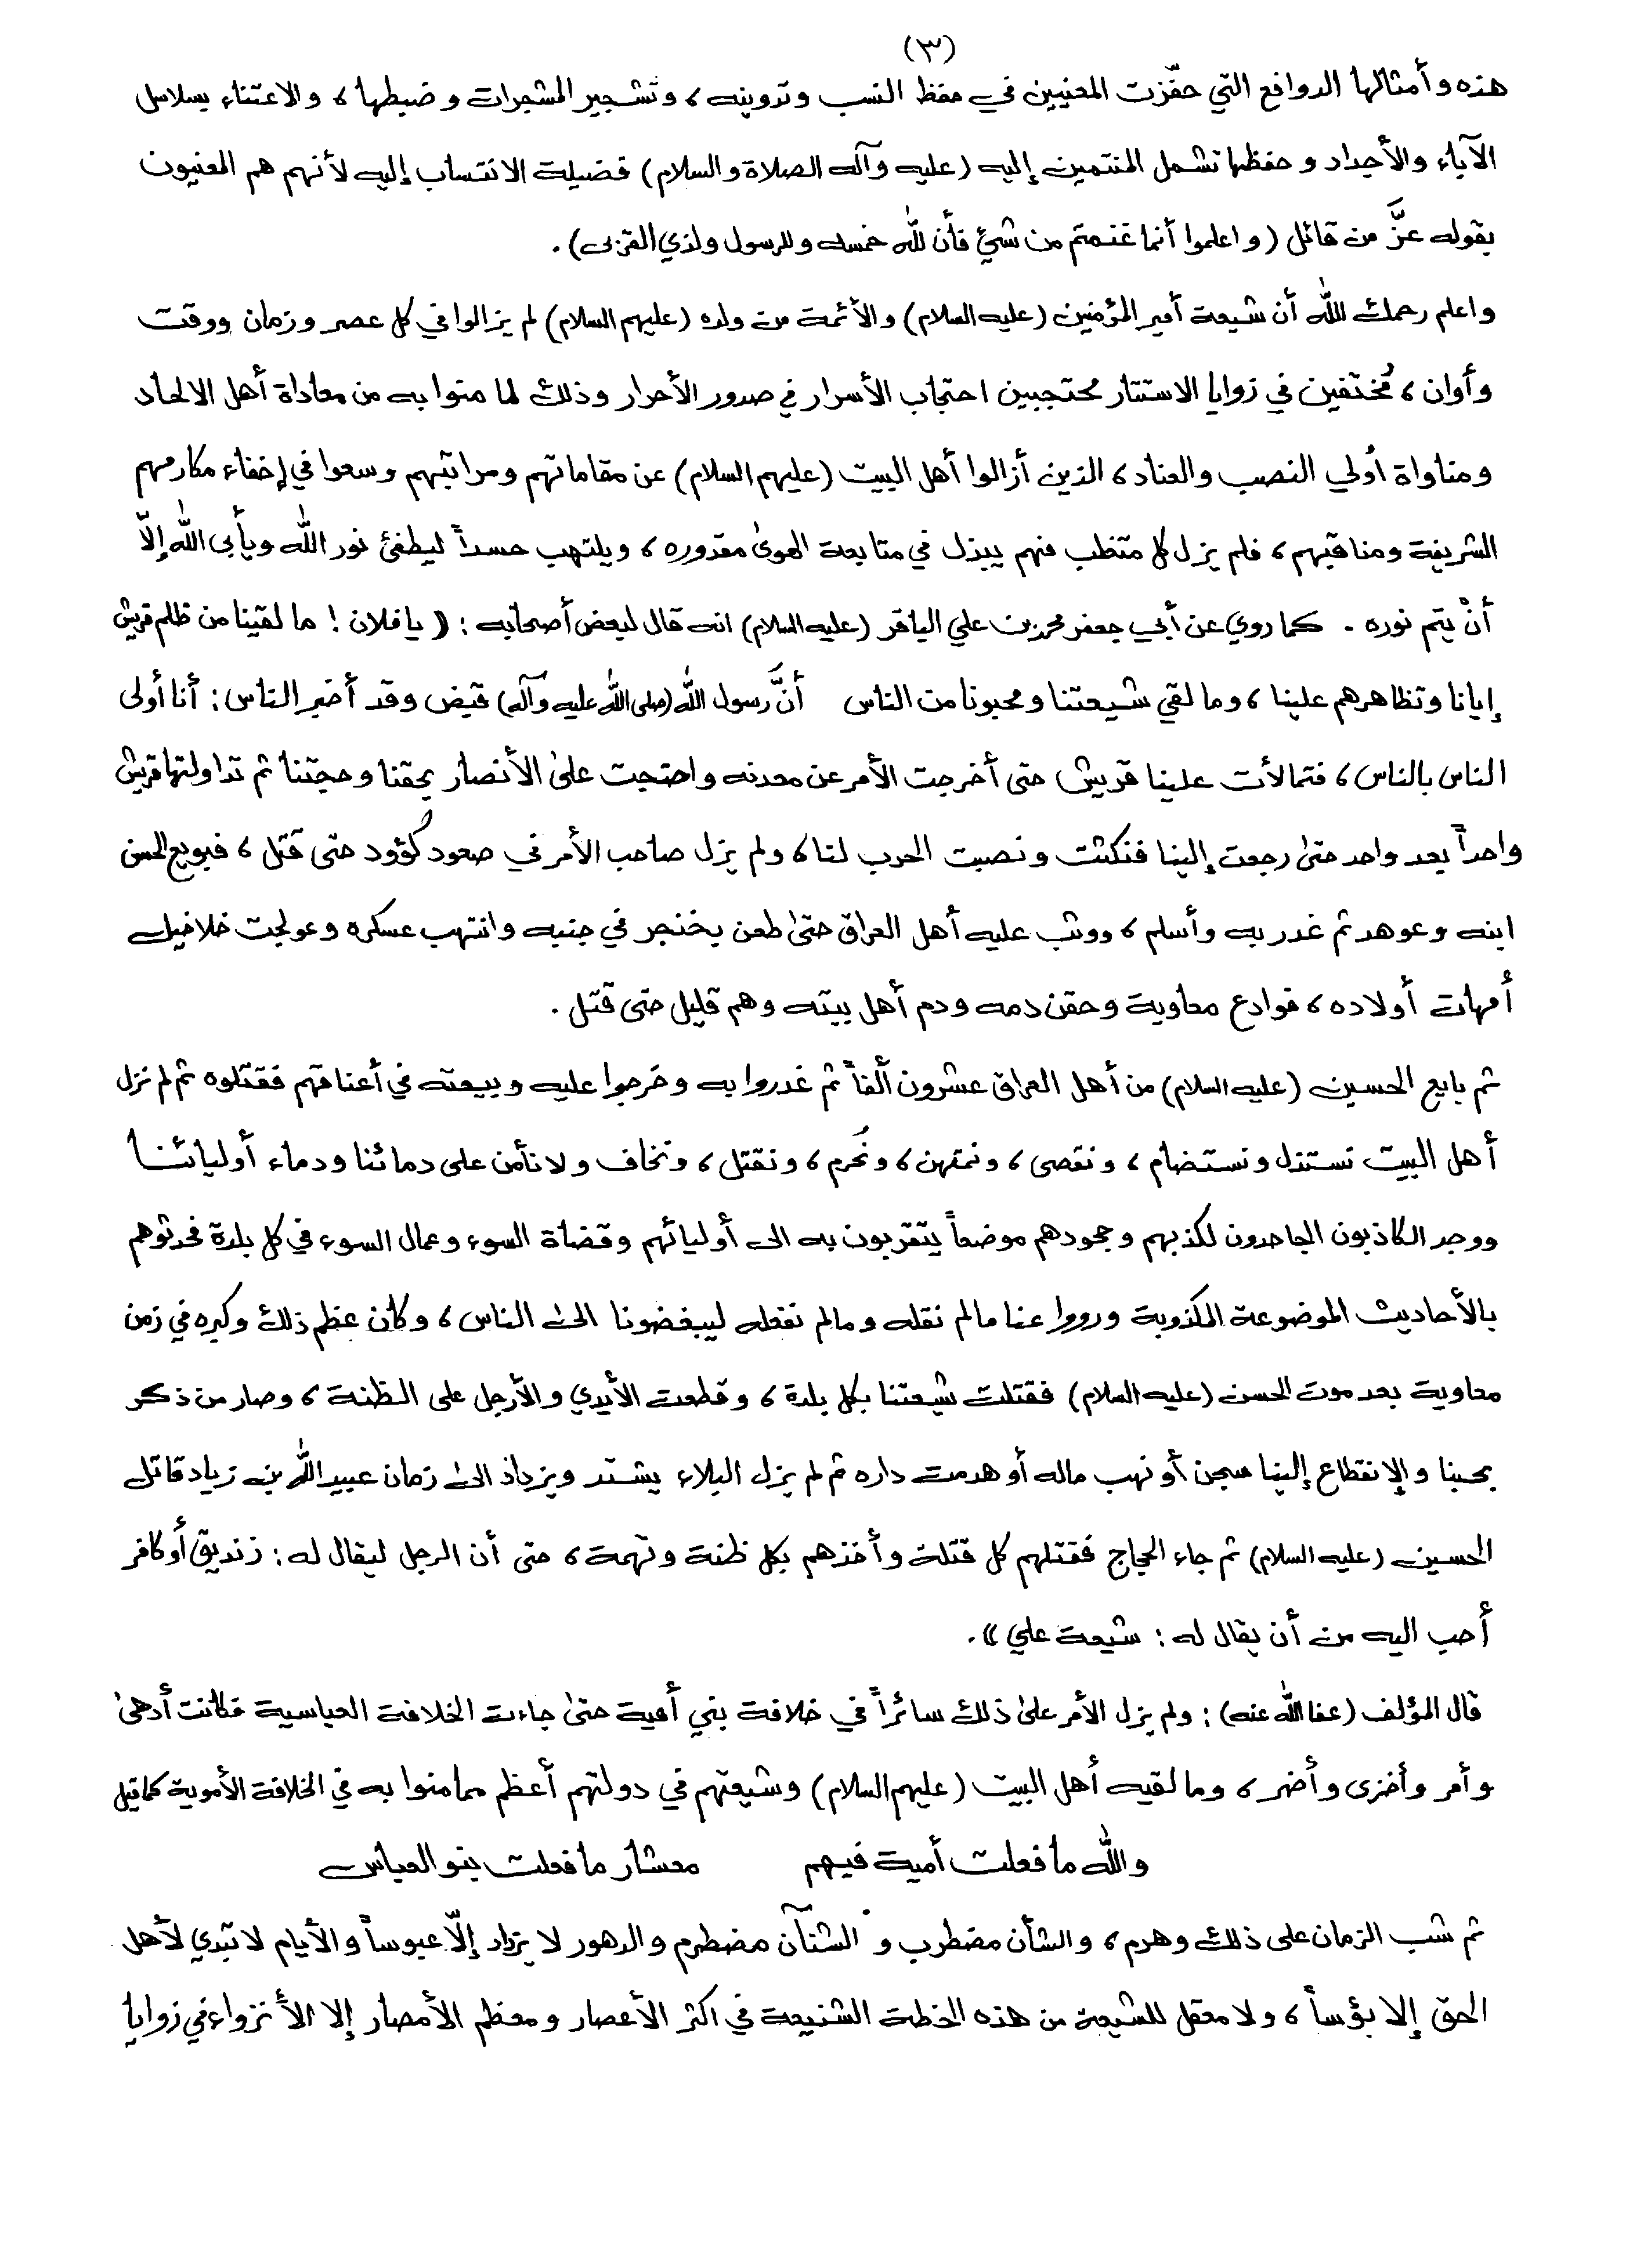 (٣)
هذه وأمثالها الدوافع التي حفّزت المعنيين في حفظ النسب وتدوينه ، وتشجير المشجرات و ضبطها ، والاعتناء بسلاسل
الآباء والأجداد و حفظها تشمل المنتمين إليه (عليه وآله الصلاة والسلام) فضيلة الانتساب إليه لأنهم هم المعنيون
بقوله عزَّ من قائل (واعلموا أنما غنمتم من شيء فأن لله خمسه وللرسول ولذي القربى) .
واعلم رحمك الله أن شيعة أمير المؤمنين (عليه السلام) والأئمة من ولده (عليهم السلام) لم يزالوا في كل عصر وزمان ووقت
وأوان ، مُختفين في زوايا الاستتار محتجبين احتجاب الأسرار في صدور الأحرار وذلك لما منوا به من معاداة أهل الالحاد
ومناواة اُولي النصب والعناد ، الذين أزالوا أهل البيت (عليهم السلام) عن مقاماتهم ومراتبهم وسعوا في إخفاء مكارمهم
الشريفة ومناقبهم ، فلم يزل كل متغلب منهم يبذل في متابعة الهوىٰ مقدوره ، ويلتهب حسداً ليطفئ نور الله ويأبى الله إلّا
أنْ يتم نوره . كما روي عن أبي جعفر محمد بن علي الباقر (عليه السلام) انه قال لبعض أصحابه : (( يا فلان ! ما لقينا من ظلم قريش
إيانا وتظاهرهم علينا ، وما لقي شيعتنا ومحبونا من الناس أنَّ رسول الله (صلى الله عليه وآله) قبض وقد أخبر الناس : أنا أولى
الناس بالناس ، فتمالأت علينا قريش حتى أخرجت الأمر عن معدنه واحتجت علىٰ الأنصار بحقنا وحجتنا ثم تداولتها قريش
واحداً بعد واحد حتىٰ رجعت إلينا فنكثت ونصبت الحرب لنا ، ولم يزل صاحب الأمر في صعود كؤود حتى قتل ، فبويع الحسن
ابنه وعوهد ثم غدر به وأسلم ، ووثب عليه أهل العراق حتىٰ طعن بخنجر في جنبه وانتهب عسكره وعولجت خلاخيل
أمهات أولاده ، فوادع معاوية وحقن دمه ودم أهل بيته وهم قليل حتى قتل .
ثم بايع الحسين (عليه السلام) من أهل العراق عشرون ألفاً ثم غدروا به وخرجوا عليه وبيعته في أعناقهم فقتلوه ثم لم نزل
أهل البيت نستذل ونستضام ، ونقصى ، ونمتهن ، ونُحرم ، ونقتل ، ونخاف ولا نأمن على دمائنا ودماء أوليائنا
ووجد الكاذبون الجاحدون لكذبهم وجحودهم موضعاً يتقربون به الى أوليائهم وقضاة السوء وعمال السوء في كل بلدة فحدثوهم
بالأحاديث الموضوعة المكذوبة ورووا عنا مالم نقله ومالم نفعله ليبغضونا الىٰ الناس ، وكان عظم ذلك وكبره في زمن
معاوية بعد موت الحسن (عليه السلام) فقتلت شيعتنا بكل بلدة ، وقطعت الأيدي والأرجل على الظنة ، وصار من ذكر
بحبنا والإنقطاع إلينا سجن أو نهب ماله أو هدمت داره ثم لم يزل البلاء يشتد ويزداد الىٰ زمان عبيد الله بن زياد قاتل
الحسين (عليه السلام) ثم جاء الحجاج فقتلهم كل قتلة وأخذهم بكل ظنة وتهمة ، حتى أن الرجل ليقال له : زنديق أو كافر
أحب اليه من أن يقال له : شيعة علي )) .
قال المؤلف (عفا الله عنه) : ولم يزل الأمر علىٰ ذلك سائراً في خلافة بني أمية حتىٰ جاءت الخلافة العباسية فكانت أدهىٰ
وأمر وأخزى وأضر ، وما لقيه أهل البيت (عليهم السلام) وشيعتهم في دولتهم أعظم مما منوا به في الخلافة الأموية كما قيل
والله ما فعلت أمية فيهم معشار ما فعلت بنو العباس
ثم شب الزمان على ذلك وهرم ، والشأن مضطرب و الشنآن مضطرم والدهور لا يزداد إلّا عبوساً والأيام لا تبدي لأهل
الحق إلا بؤساً ، ولا معقل للشيعة من هذه الخطة الشنيعة في اكثر الأعصار ومعظم الأمصار إلا الأنزواء في زوايا